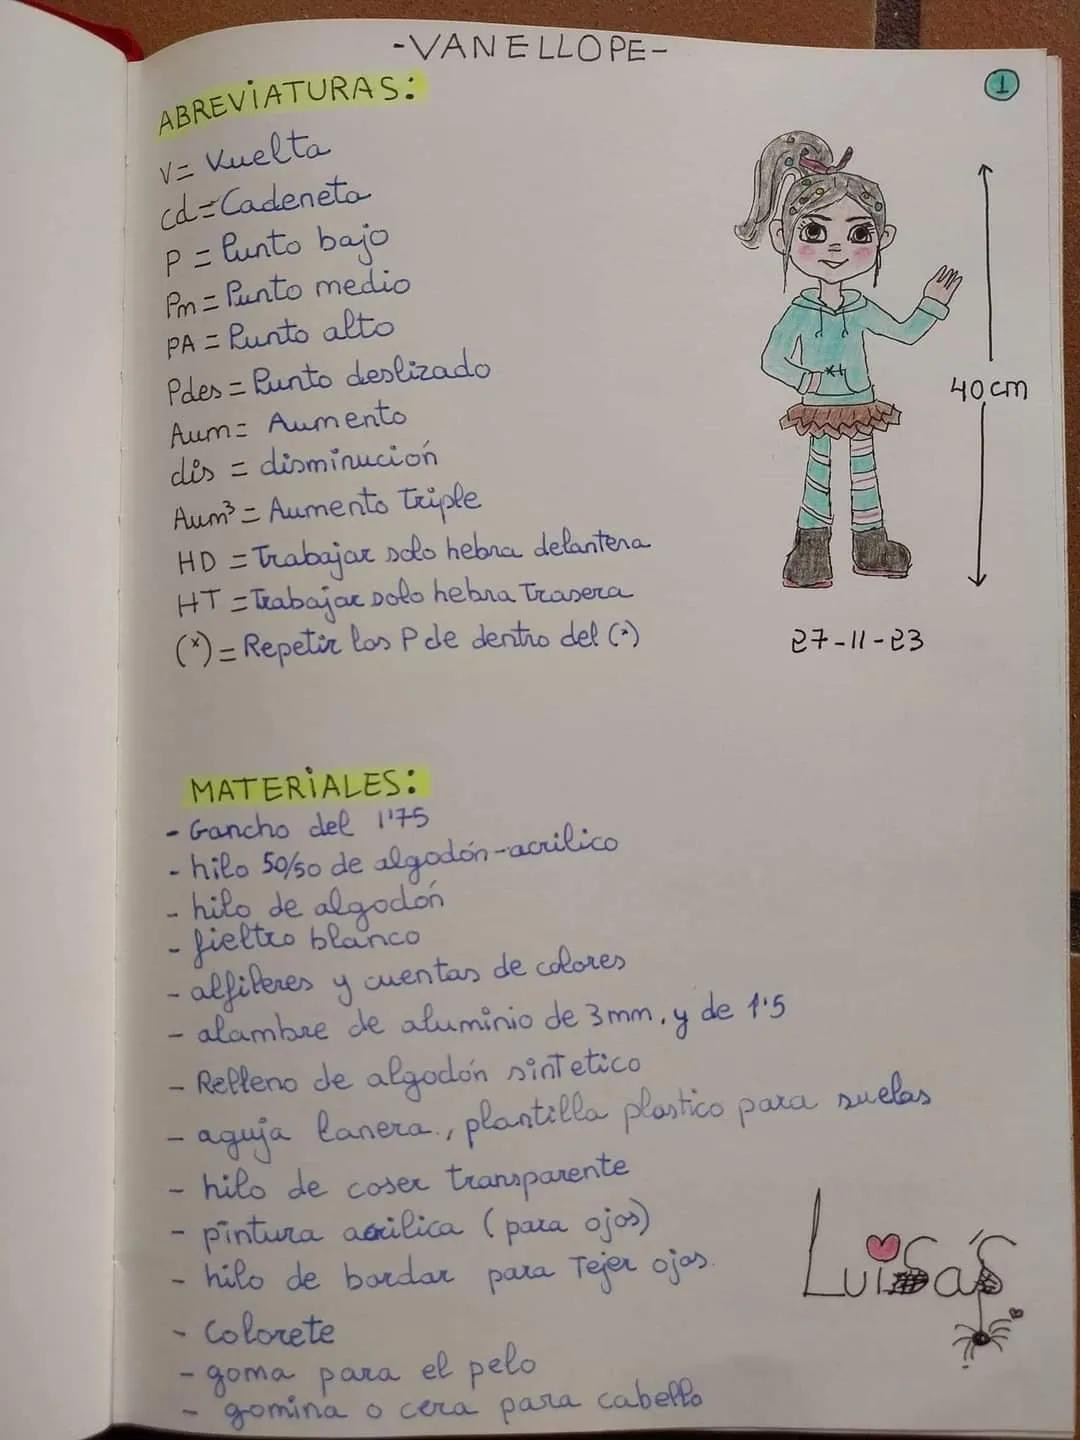 -VANELLOPE-
1
ABREVIATURAS:
V= Vuelta
cd=Cadeneta
P = Punto bajo
Pm = Punto medio
PA = Punto alto
Pdes = Punto deslizado
Aum = Aumento
dis = disminución
Aum³ = Aumento triple
HD = Trabajar solo hebra delantera
HT = Trabajar solo hebra trasera
(*) = Repetir los P de dentro del (*)
40 cm
27-11-23
MATERIALES:
- Gancho del 1'75
- hilo 50/50 de algodón-acrilico
- hilo de algodón
- fieltro blanco
- alfileres y cuentas de colores
- alambre de aluminio de 3mm. y de 1'5
- Relleno de algodón sintetico
- aguja lanera., plantilla plastico para suelas
- hilo de coser transparente
- pintura acrilica (para ojos)
- hilo de bordar para Tejer ojos.
- Colorete
- goma para el pelo
- gomina o cera para cabello
Luisa's